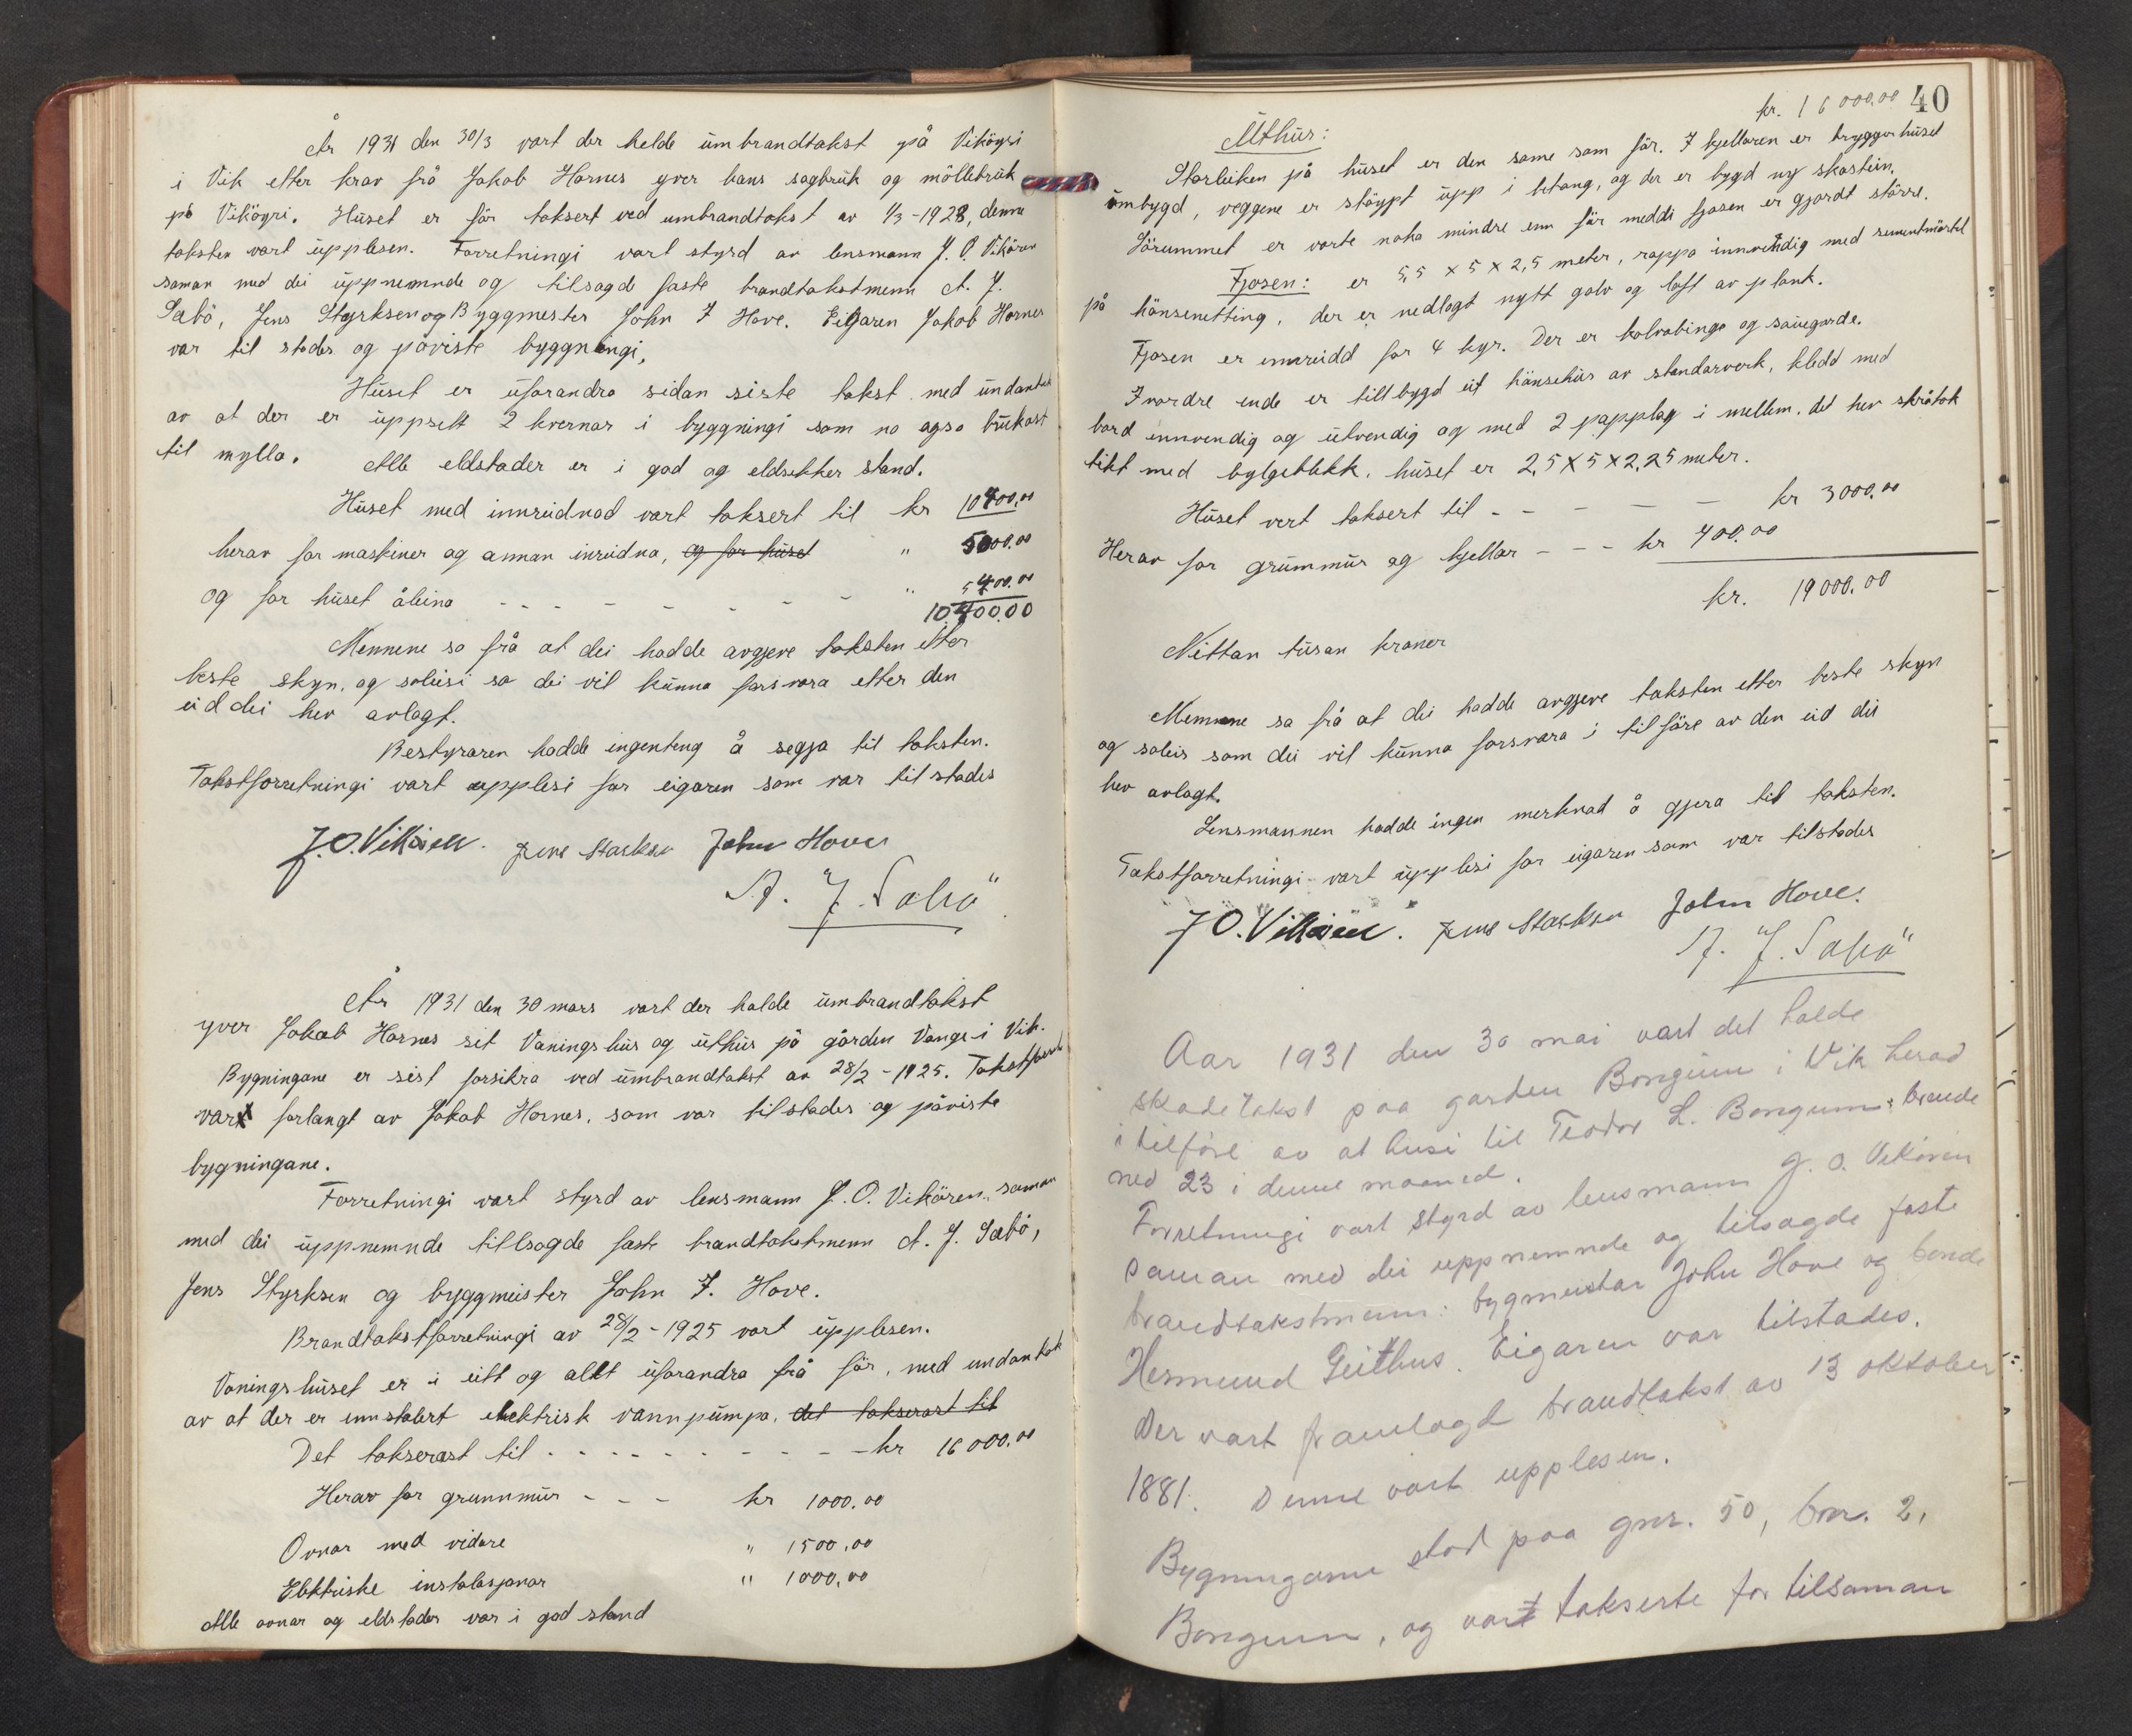 År 1931 den 30/3 vart der helde umbrandtakst på Vikögri
i Vik etter krav frå Jakob Hornes yver hans sagbruk og möllebruk
på Vikögri. Huset er för taksert ved umbrandtakst av 1/3-1928, denne
taksten vart upplesen. Forretningi vart styrd av lensmann J. O. Vikören
saman med dei uppnemnde og tilsagde faste brandtakstmenn A. J.
Sæbö, Jens Styrksen og Byggmester John J Hove. Eigaren Jakob Hornes
var til stades og påviste byggningi.
Huset er uforandra sidan siste takst med undantak
av at der er uppsett 2 kvernar i byggningi som no ogso brukast
til mylla. Alle eldstader er i god og eldsikker stand.
Huset med innreidnad vart taksert til kr 10400.00
herav for maskiner og annan inreidna, og for huset " 5000.00
og for huset åleina - - - - - - - " 5400.00
10400.00
Mennene sa frå at dei hadde avgjeve taksten etter
beste skyn, og soleisi so dei vil kunna forsvara etter den
eid dei hev avlagt.
Bestyraren hadde ingenteng å segja til taksten.
Takstforretningi vart upplesi for eigaren som var tilstades
J.O. Vikören. Jens Starksen John Hove
A. J. Sæbö
År 1931 den 30 mars vart der halde umbrandtakst
yver Jakob Hornes sit Vaningshus og uthus på gården Vange i Vik.
Bygningane er sist forsikra ved umbrandtakst av 28/2-1925.
vart forlangt av Jakob Hornes, som var tilstades og påviste
bygningane.
Forretningi vart styrd av lensmann J. O. Vikören, saman
med dei uppnemnde tillsagde faste brandtakstmenn A. J. Sæbö,
Jens Styrksen og byggmeister John J. Hove.
Brandtakstforretningi av 28/2-1925 vart upplesen.
Vaningshuset er i eitt og allt uforandra frå för, med undantak
av at der er innstalert elektrisk vannpumpa. det takserast til
Det takserast til - - - - - - - - - - kr 16000.00
Herav for grunnmur - - - kr 1000.00
Ovnar med vidare " 1500.00
Elektriske instalasjonar " 1000.00
Alle ovnar og eldstader var i god stand
kr. 16000.00 40
Uthus:
Storleiken på huset er den same som för. I kjellaren er bryggerhuset
umbygd, veggene er stöypt upp i betong, og der er bygd ny skostein.
Sörummet er vorte noko mindre enn för meddi fjosen er gjordt större.
Fjosen: er 5,5 x 5 x 2,5 meter, rappa innvendig med sementmörtel
på hönsenetting, der er nedlagt nytt golv og loft av plank.
Fjosen er innreidd for 4 kyr. Der er kalvabinge og sauegarde.
I nordre ende er tillbygd eit hönsehus av standarverk, kledd med
bord innvendig og utvendig og med 2 papplag i mellem. det hev skråtak
tekt med bylgeblekk. huset er 2,5 x 5 x 2,25 meter.
Huset vert taksert til - - - - - kr 3000.00
Herav for grunnmur og kjellar - - - kr 400.00
kr. 19000.00
Nittan tusan kroner
Mennene sa frå at dei hadde avgjeve taksten etter beste skyn
og soleis som dei vil kunna forsvara i tilföre av den eid dei
hev avlagt.
Lensmannen hadde ingen merknad å gjera til taksten.
Takstforretningi vart upplesi for eigaren som var tilstades
J O. Vikören. Jens Starksen John Hove.
A. J. Sæbö
Aar 1931 den 30 mai vart det halde
skadetakst paa garden Bongum i Vik herad
i tilföre av at husi til Teodor L. Bongum brende
ned 23 i denne maaned.
Forretningi vart styrd av lensmann J. O. Vikören
saman med dei uppnemnde og tilsagde faste
brandtakstmenn: bygmeistar John Hove og bonde
Hermund Geithus. Eigaren var tilstades.
Der vart framlagd brandtakst av 13 oktober
1881. Denne vart upplesen.
Bygningarne stod paa gnr. 50, bnr. 2,
Bongum, og vart takserte for tilsaman